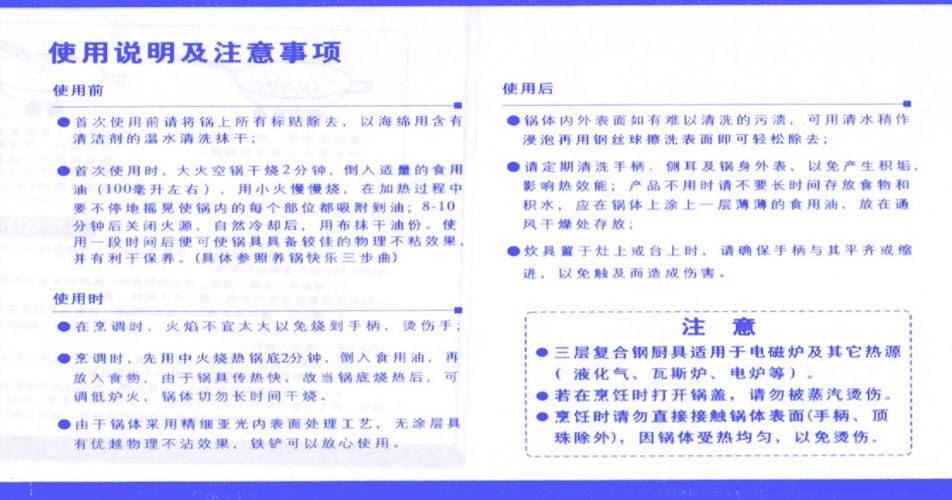 使用说明及注意事项
使用前
●首次使用前请将锅上所有标贴除去，以海绵用含有
清洁剂的温水清洗抹干；
●首次使用时，大火空锅干烧2分钟，倒入适量的食用
油（100毫升左右），用小火慢慢烧，在加热过程中
要不停地摇晃使锅内的每个部位都吸附到油；8-10
分钟后关闭火源，自然冷却后，用布抹干油份。使
用一段时间后便可使锅具具备较佳的物理不粘效果，
并有利于保养。(具体参照养锅快乐三步曲)
使用时
●在烹调时，火焰不宜太大以免烧到手柄，烫伤手；
●烹调时、先用中火烧热锅底2分钟，倒入食用油，再
放入食物，由于锅具传热快，故当锅底烧热后，可
调低炉火，锅体切勿长时间干烧。
●由于锅体采用精细亚光内表面处理工艺，无涂层具
有优越物理不沾效果，铁铲可以放心使用。
使用后
●锅体内外表面如有难以清洗的污渍，可用清水稍作
浸泡再用钢丝球擦洗表面即可轻松除去；
●请定期清洗手柄、侧耳及锅身外表，以免产生积垢，
影响热效能；产品不用时请不要长时间存放食物和
积水，应在锅体上涂上一层薄薄的食用油，放在通
风干燥处存放；
●炊具置于灶上或台上时，请确保手柄与其平齐或缩
进，以免触及而造成伤害。
注 意
●三层复合钢厨具适用于电磁炉及其它热源
（液化气、瓦斯炉、电炉等）。
●若在烹饪时打开锅盖，请勿被蒸汽烫伤。
●烹饪时请勿直接接触锅体表面(手柄、顶
珠除外)，因锅体受热均匀，以免烫伤。